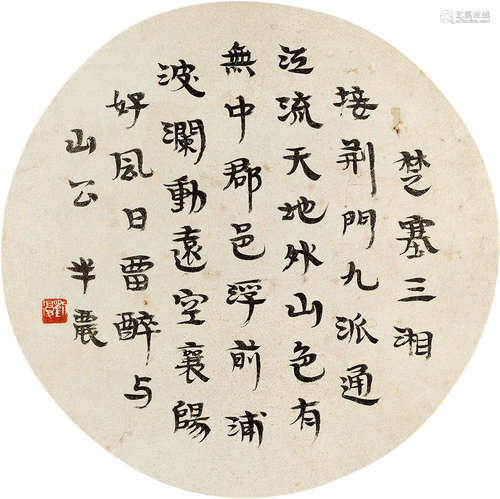 楚塞三湘
接荆門九派通
江流天地外山色有
無中郡邑浮前浦
波瀾動遠空襄陽
好風日留醉与
山公 半農